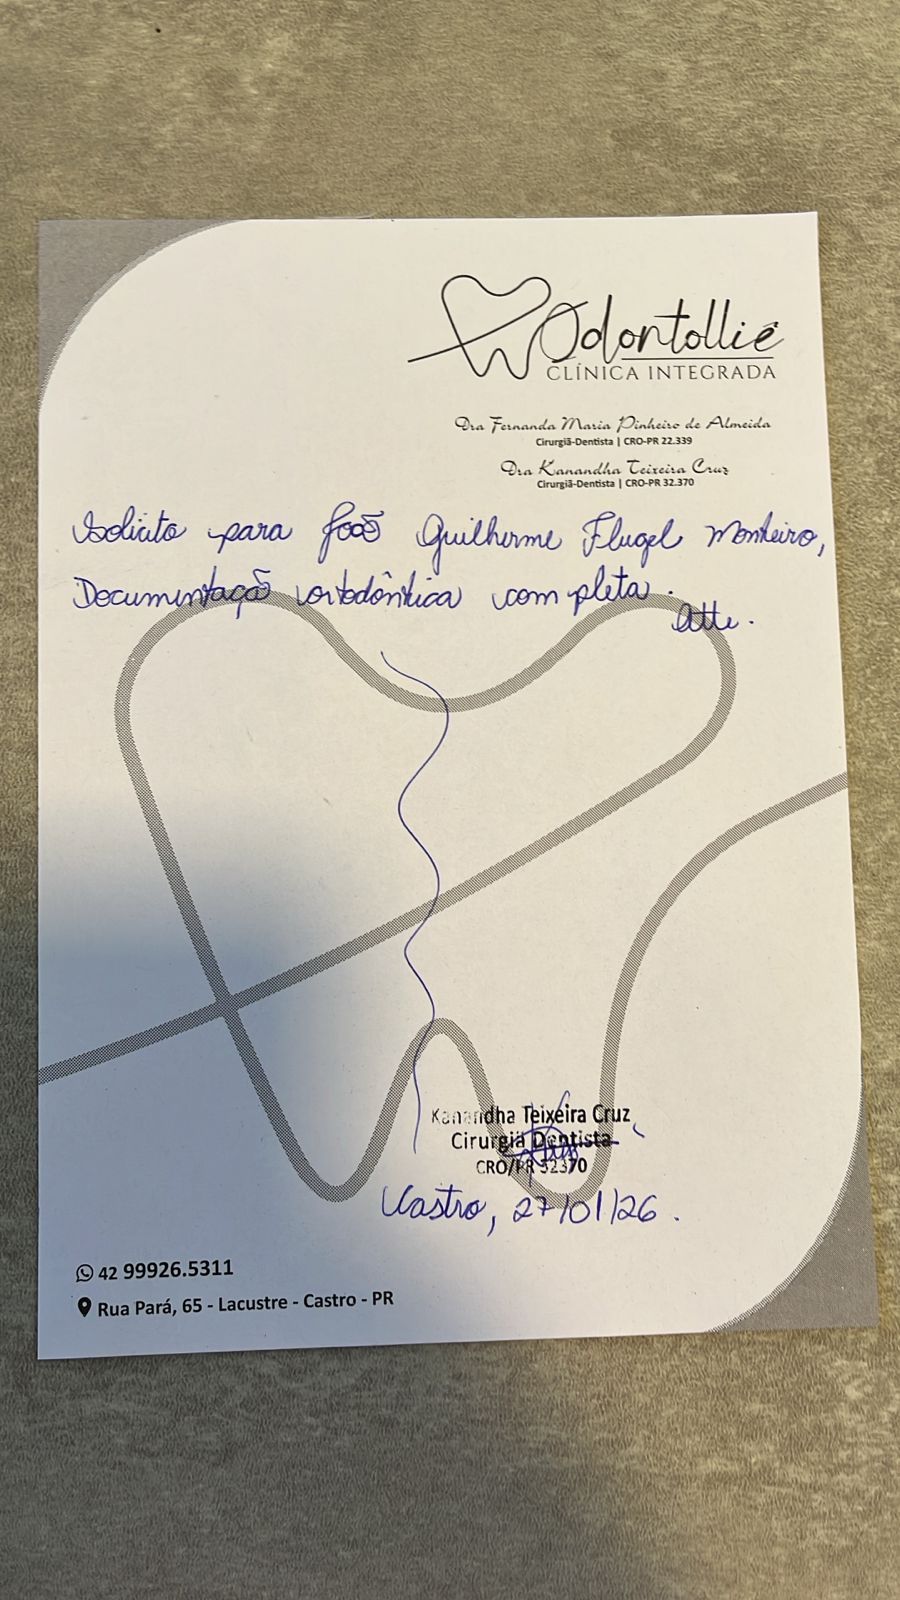 Odontolliê
CLÍNICA INTEGRADA
Dra Fernanda Maria Pinheiro de Almeida
Cirurgiã-Dentista | CRO-PR 22.339
Dra Kanandha Teixeira Cruz
Cirurgiã-Dentista | CRO-PR 32.370
Solicito para João Guilherme Flugel Monteiro,
Documentação ortodôntica completa.
Atte.
Kanandha Teixeira Cruz
Cirurgiã Dentista
CRO/PR 32370
Castro, 27/01/26.
42 99926.5311
Rua Pará, 65 - Lacustre - Castro - PR